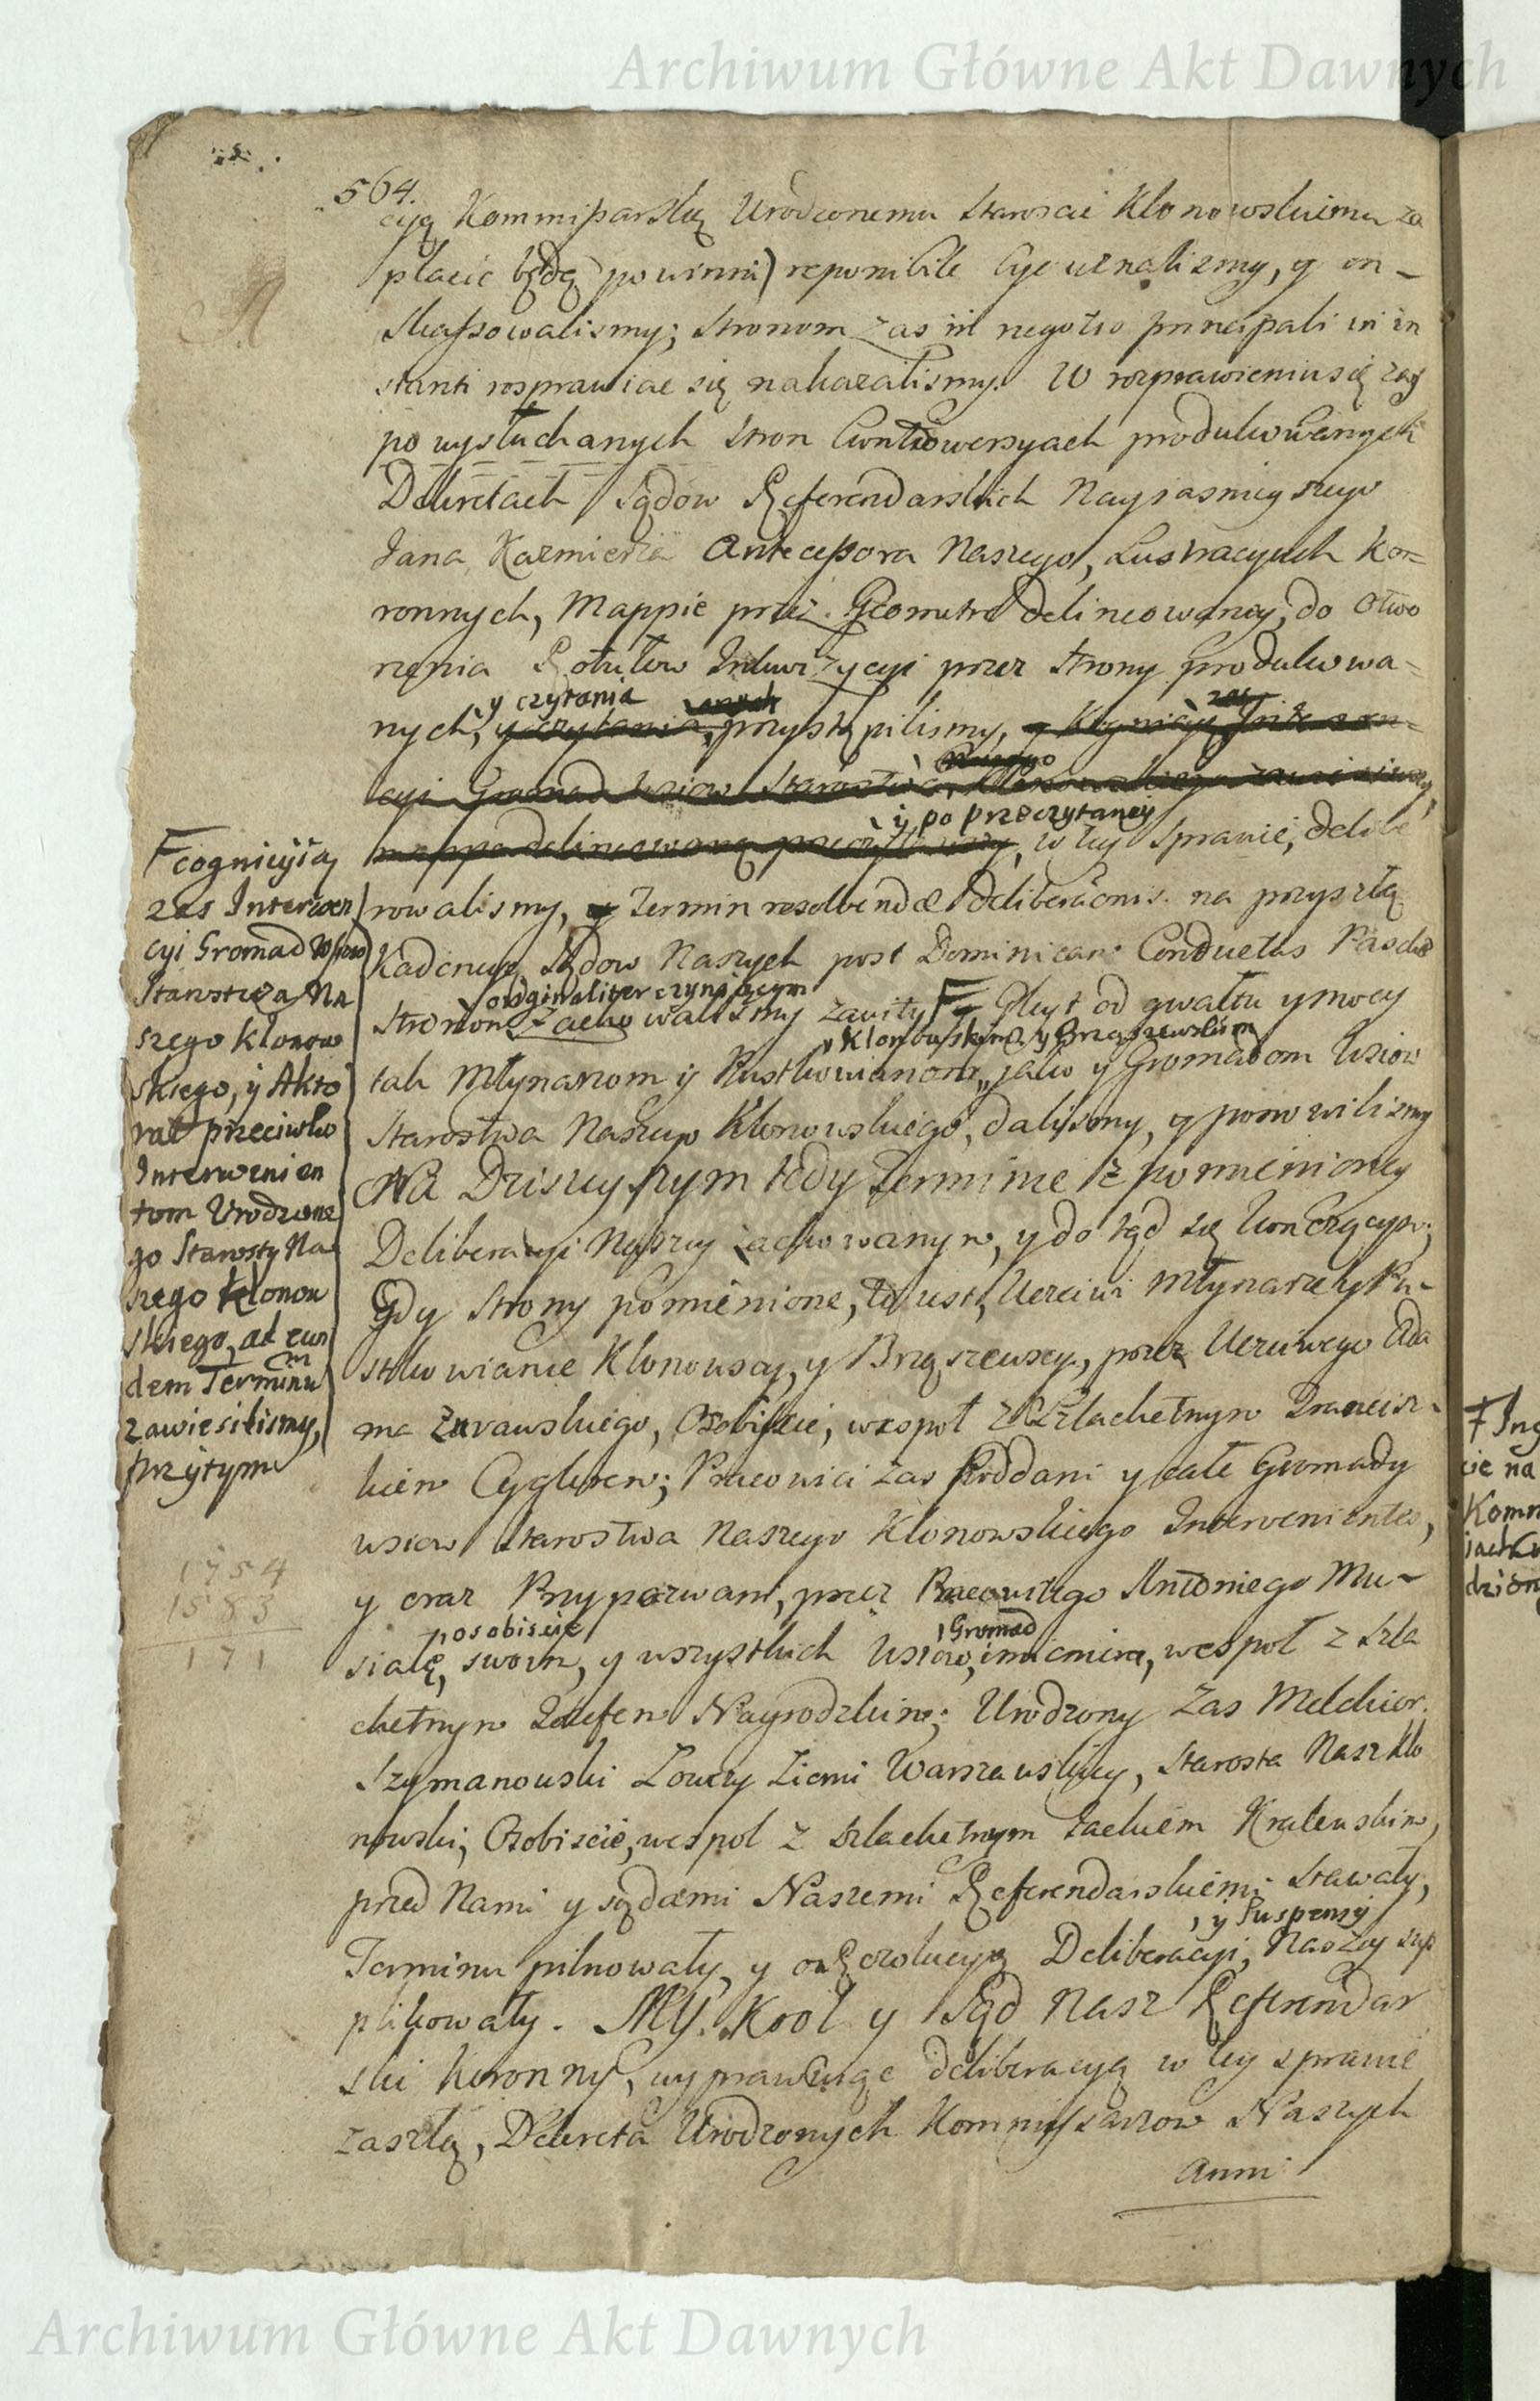 Archiwum Główne Akt Dawnych
564.
cyą Kommissarską Urodzonemu Staroscie Klonowskiemu za
płacic będą powinni) reponibile byc uznalismy, y on
skassowalismy; Stronom zas in negotio principali in in
stanti rosprawiac się nakazalismy. W rozprawieniu się zas
po wysłuchanych Stron Controwersyach produkowanych
Dekretach Sądow Referendarskich Nayiasnieyszego
Jana Kazmierza Antecessora Naszego, Lustracyach Ko=
ronnych, Mappie przez Geometrę delineowaney, do otwo
rzenia Rotułow Inkwizycyi przez Strony produkowa=
y czytania onych zas
nych, y czytania, przystąpilismy, y Kognicyą Interwen=
Naszego
cyi Gromad wsiow Starostwa Klonowskiego zawiesiwszy,
y po przeczytaney
mappę delineowaną przeczytawszy, w tey Sprawie, delibe
rowalismy, y Termin resolvendæ deliberationis na przyszłą
Kadencyą Sądow Naszych post Dominicam Conductus Paschæ
originaliter czyniącym
Stronom zachowalismy zawity F Gleyt od gwałtu y mocy
Klonowskim y Brząszewskim
tak Młynarzom y Pustkowianom, jako y Gromadom wsiow
Starostwa Naszego Klonowskiego, dalismy, y ponowilismy
Na Dzisieyszym tedy Terminie z pomienioney
Deliberacyi Naszey zachowanym, y do tąd się kontyn
Gdy Strony pomienione, to iest, Uczciwi Młynarze y Pu=
stkowianie Klonowscy, y Brząszewscy, przez Uczciwego Ada
ma Zurawskiego, Osobiscie, wespoł z Szlachetnym Franciszkiem
Cyglerem; Pracowici zas Poddani y całe Gromady
wsiow Starostwa Naszego Klonowskiego Intervenientes,
y oraz Przypozwani, przez Pracowitego Antoniego Mu=
osobiscie Gromad
siałę, swoim, y wszystkich wsiow, imieniem, wespoł z Szla
chetnym Jozefem Nagrodzkim; Urodzony zas Melchior
Szymanowski Łowczy Ziemi Warszawskiey, Starosta Nasz Klo
nowski, Osobiscie, wespoł z Szlachetnym Jackiem Kralewskim,
przed Nami y sądami Naszemi Referendarskiemi Stawały,
y Suspensy
Terminu pilnowały, y o Rezolucyą Deliberacyi, Naszey sup
plikowały. My Krol y Sąd Nasz Referendar
ski Koronny, wyprawuiąc deliberacyą w tey sprawie
zaszłą, Dekreta Urodzonych Kommissarzow Naszych
Anni
F cognicyią
zas Interwen
cyi Gromad Wsiow
Starostwa Na
szego Klonow
skiego, y Akto
rat przeciwko
Interwenien
tom Urodzone
go Starosty Na
szego Klonow
skiego, ad eun
dem Terminum
zawiesilismy,
przytym
1754
1583
171
F Ing
cie na
Komm
iach
dzion
Archiwum Główne Akt Dawnych